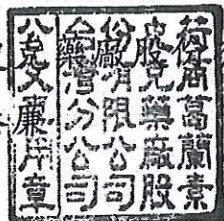 荷商葛蘭素
史克藥廠股
份有限公司
台灣分公司
章